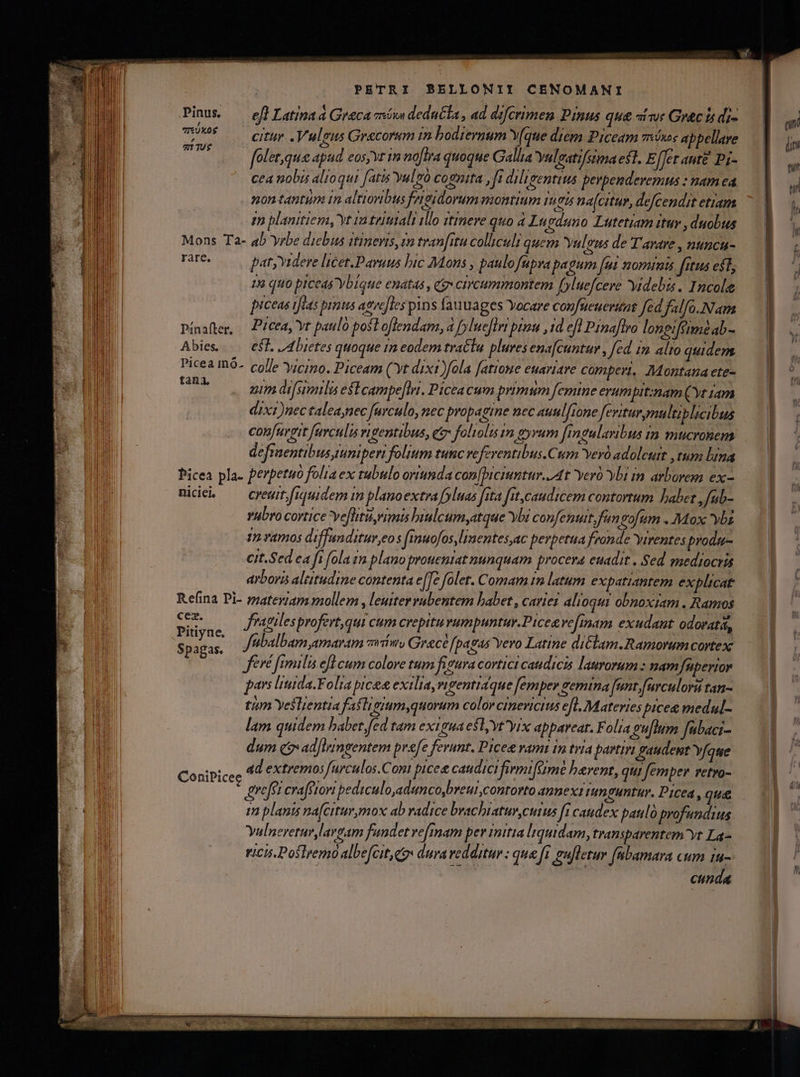 PETRI BELLONII CENOMANI
Pinus. est Latina à Græca πεύκη deducta, ad discrimen Pinus quæ πίτυς Græcis di-
πεύκος citur. Vulgus Græcorum in hodiernum vsque diem Piceam πεύκος appellare
πίτυς solet, quæ apud eos, vt in nostra quoque Gallia vulgatissima est. Esset autē Pi-
cea nobis alioqui satis vulgò cognita, si diligentius perpenderemus: nam ea
non tantùm in altioribus frigidorum montium iugis nascitur, descendit etiam
in planitiem, vt in triuiali illo itinere quo à Lugduno Lutetiam itur, duobus
Mons Ta- ab vrbe diebus itineris, in transitu colliculi quem vulgus de Tarare, nuncu-
rare. pat, videre licet. Paruus hic Mons, paulo supra pagum sui nominis situs est,
in quo piceas vbique enatas, & circummontem syluescere videbis. Incolæ
piceas istas pinus agrestes pins sauuages vocare consueuerunt sed falso. Nam
Pinaster. Picea, vt paulò post ostendam, à syluestri pinu, id est Pinastro longissimè ab-
Abies. est. Abietes quoque in eodem tractu plures enascuntur, sed in alto quidem
Picea mō- colle vicino. Piceam (vt dixi) sola satione euariare comperi. Montana ete-
tana. nim dissimilis est campestri. Picea cum primùm semine erumpit: nam (vt iam
dixi) nec talea, nec surculo, nec propagine nec auulsione seritur, multiplicibus
consurgit surculis rigentibus, & foliolis in gyrum singularibus in mucronem
desinentibus, iuniperi folium tunc referentibus. Cum verò adoleuit, tum bina
Picea pla- perpetuò folia ex tubulo oriunda conspiciuntur. At verò vbi in arborem ex-
niciei. creuit, siquidem in plano extra syluas sita sit, caudicem contortum habet, sub-
rubro cortice vestitū, rimis hiulcum, atque vbi consenuit, fungosum. Mox vbi
in ramos diffunditur, eos sinuosos, linentes, ac perpetua fronde virentes produ-
cit. Sed ea si sola in plano proueniat nunquam procera euadit. Sed mediocris
arboris altitudine contenta esse solet. Comam in latum expatiantem explicat
Resina Pi- materiam mollem, leuiter rubentem habet, cariei alioqui obnoxiam. Ramos
ceæ. fragiles profert, qui cum crepitu rumpuntur. Piceæ resinam exudant odoratā,
Pityine.
Spagas. subalbam, amaram Græcè spagas vero Latine dictam. Ramorum cortex
ferè similis est cum colore tum figura cortici caudicis laurorum: nam superior
pars liuida. Folia piceæ exilia, rigentiáque semper gemina sunt, surculorū tan-
tùm vestientia fastigium, quorum color cinericius est. Materies piceæ medul-
lam quidem habet, sed tam exigua est, vt vix appareat. Folia gustum subaci-
dum & adstringentem præ se ferunt. Piceæ rami in tria partiri gaudent vsque
ad extremos surculos. Coni piceæ caudici firmissimè hærent, qui semper retro-
Coni Piceę gressi crassiori pediculo, adunco, breui, contorto annexi iunguntur. Picea, quæ
in planis nascitur, mox ab radice brachiatur, cuius si caudex paulò profundius
vulneretur, largam fundet resinam per initia liquidam, transparentem vt La-
ricis. Postremò albescit, & dura redditur: quæ si gustetur subamara cum iu-
cunda